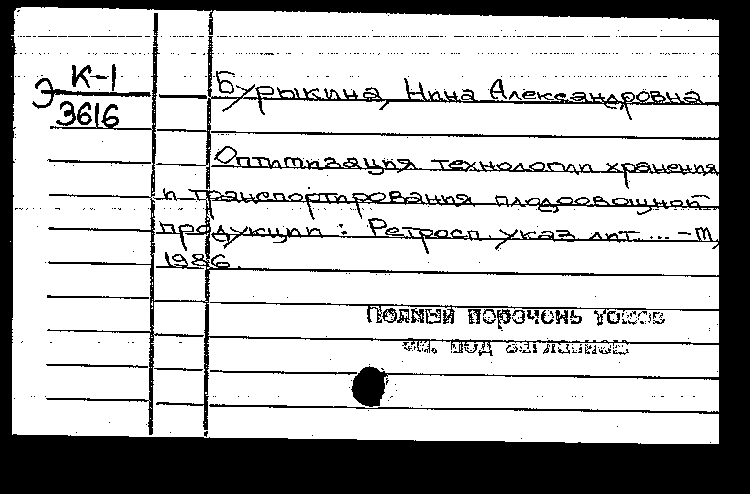 Э К-1
3616
Бурыкина, Нина Александровна
Оптимизация технологии хранения
и транспортирования плодоовощной
продукции : Ретросп. указ. лит. ... - М,
1986.
Полный перечень томов
см. под заглавием